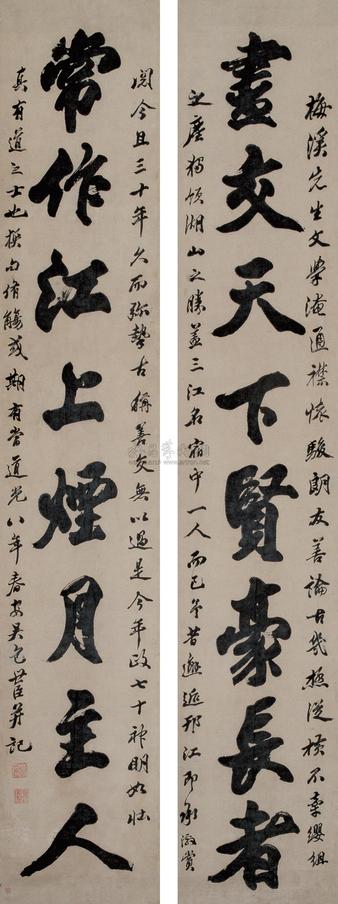 盡交天下賢豪長者
常作江上煙月主人
梅溪先生文學淹通襟懷駿朗友善論古幾極從横不牽纓組
之塵獨領湖山之勝蓋三江名宿中一人而已予昔邂逅邗江即承激賞
閱今且三十年久而弥摯古稱善交無以過是今年政七十神明如壯
真有道之士也撰句侑觴或期有當道光八年春安吴包世臣并記